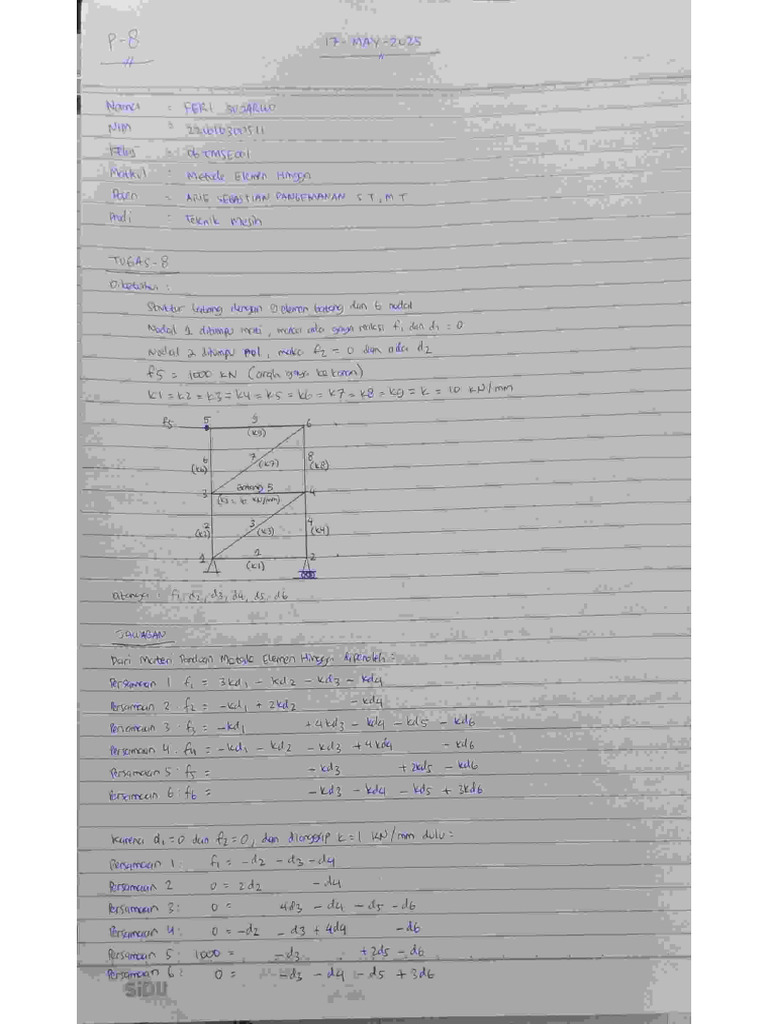 P-8
17-MAY-2025
Nama : FERI SUJARWO
NIM :
Matkul : Metode Elemen Hingga
Dosen = ARIE SEBASTIAN PANGEMANAN ST, MT
Prodi : Teknik Mesin
TUGAS-8
Diketahui :
Struktur batang dengan 9 elemen batang dan 6 nodal
Nodal 1 ditumpu mati, maka ada gaya reaksi f1 dan d1 = 0
Nodal 2 ditumpu rol, maka f2 = 0 dan ada d2
f5 = 1000 KN (arah gaya ke kanan)
K1 = K2 = K3 = K4 = K5 = K6 = K7 = K8 = K9 = K = 10 KN/mm
F5 5 9 6
(K9)
6 7 8
(K6) (K7) (K8)
3 batang 5 4
2 3 4
(K2) (K3) (K4)
1 1 2
(K1)
Ditanya : f1, d2, d3, d4, d5, d6
JAWABAN
Dari Materi Panduan Metode Elemen Hingga diperoleh :
Persamaan 1 f1 = 3kd1 - kd2 - kd3 - kd4
Persamaan 2 f2 = -kd1 + 2kd2 - kd4
Persamaan 3 : f3 = -kd1 + 4kd3 - kd4 - kd5 - kd6
Persamaan 4 : f4 = -kd1 - kd2 - kd3 + 4kd4 - kd6
Persamaan 5 : f5 = - kd3 + 2kd5 - kd6
Persamaan 6 : f6 = - kd3 - kd4 - kd5 + 3kd6
Karena d1=0 dan f2=0, dan dianggap k=1 KN/mm dulu :
Persamaan 1 : f1 = -d2 - d3 - d4
Persamaan 2 0 = 2d2 - d4
Persamaan 3 : 0 = 4d3 - d4 - d5 - d6
Persamaan 4 : 0 = -d2 - d3 + 4d4 - d6
Persamaan 5 : 1000 = - d3 + 2d5 - d6
Persamaan 6 : 0 = - d3 - d4 - d5 + 3d6
SiDU